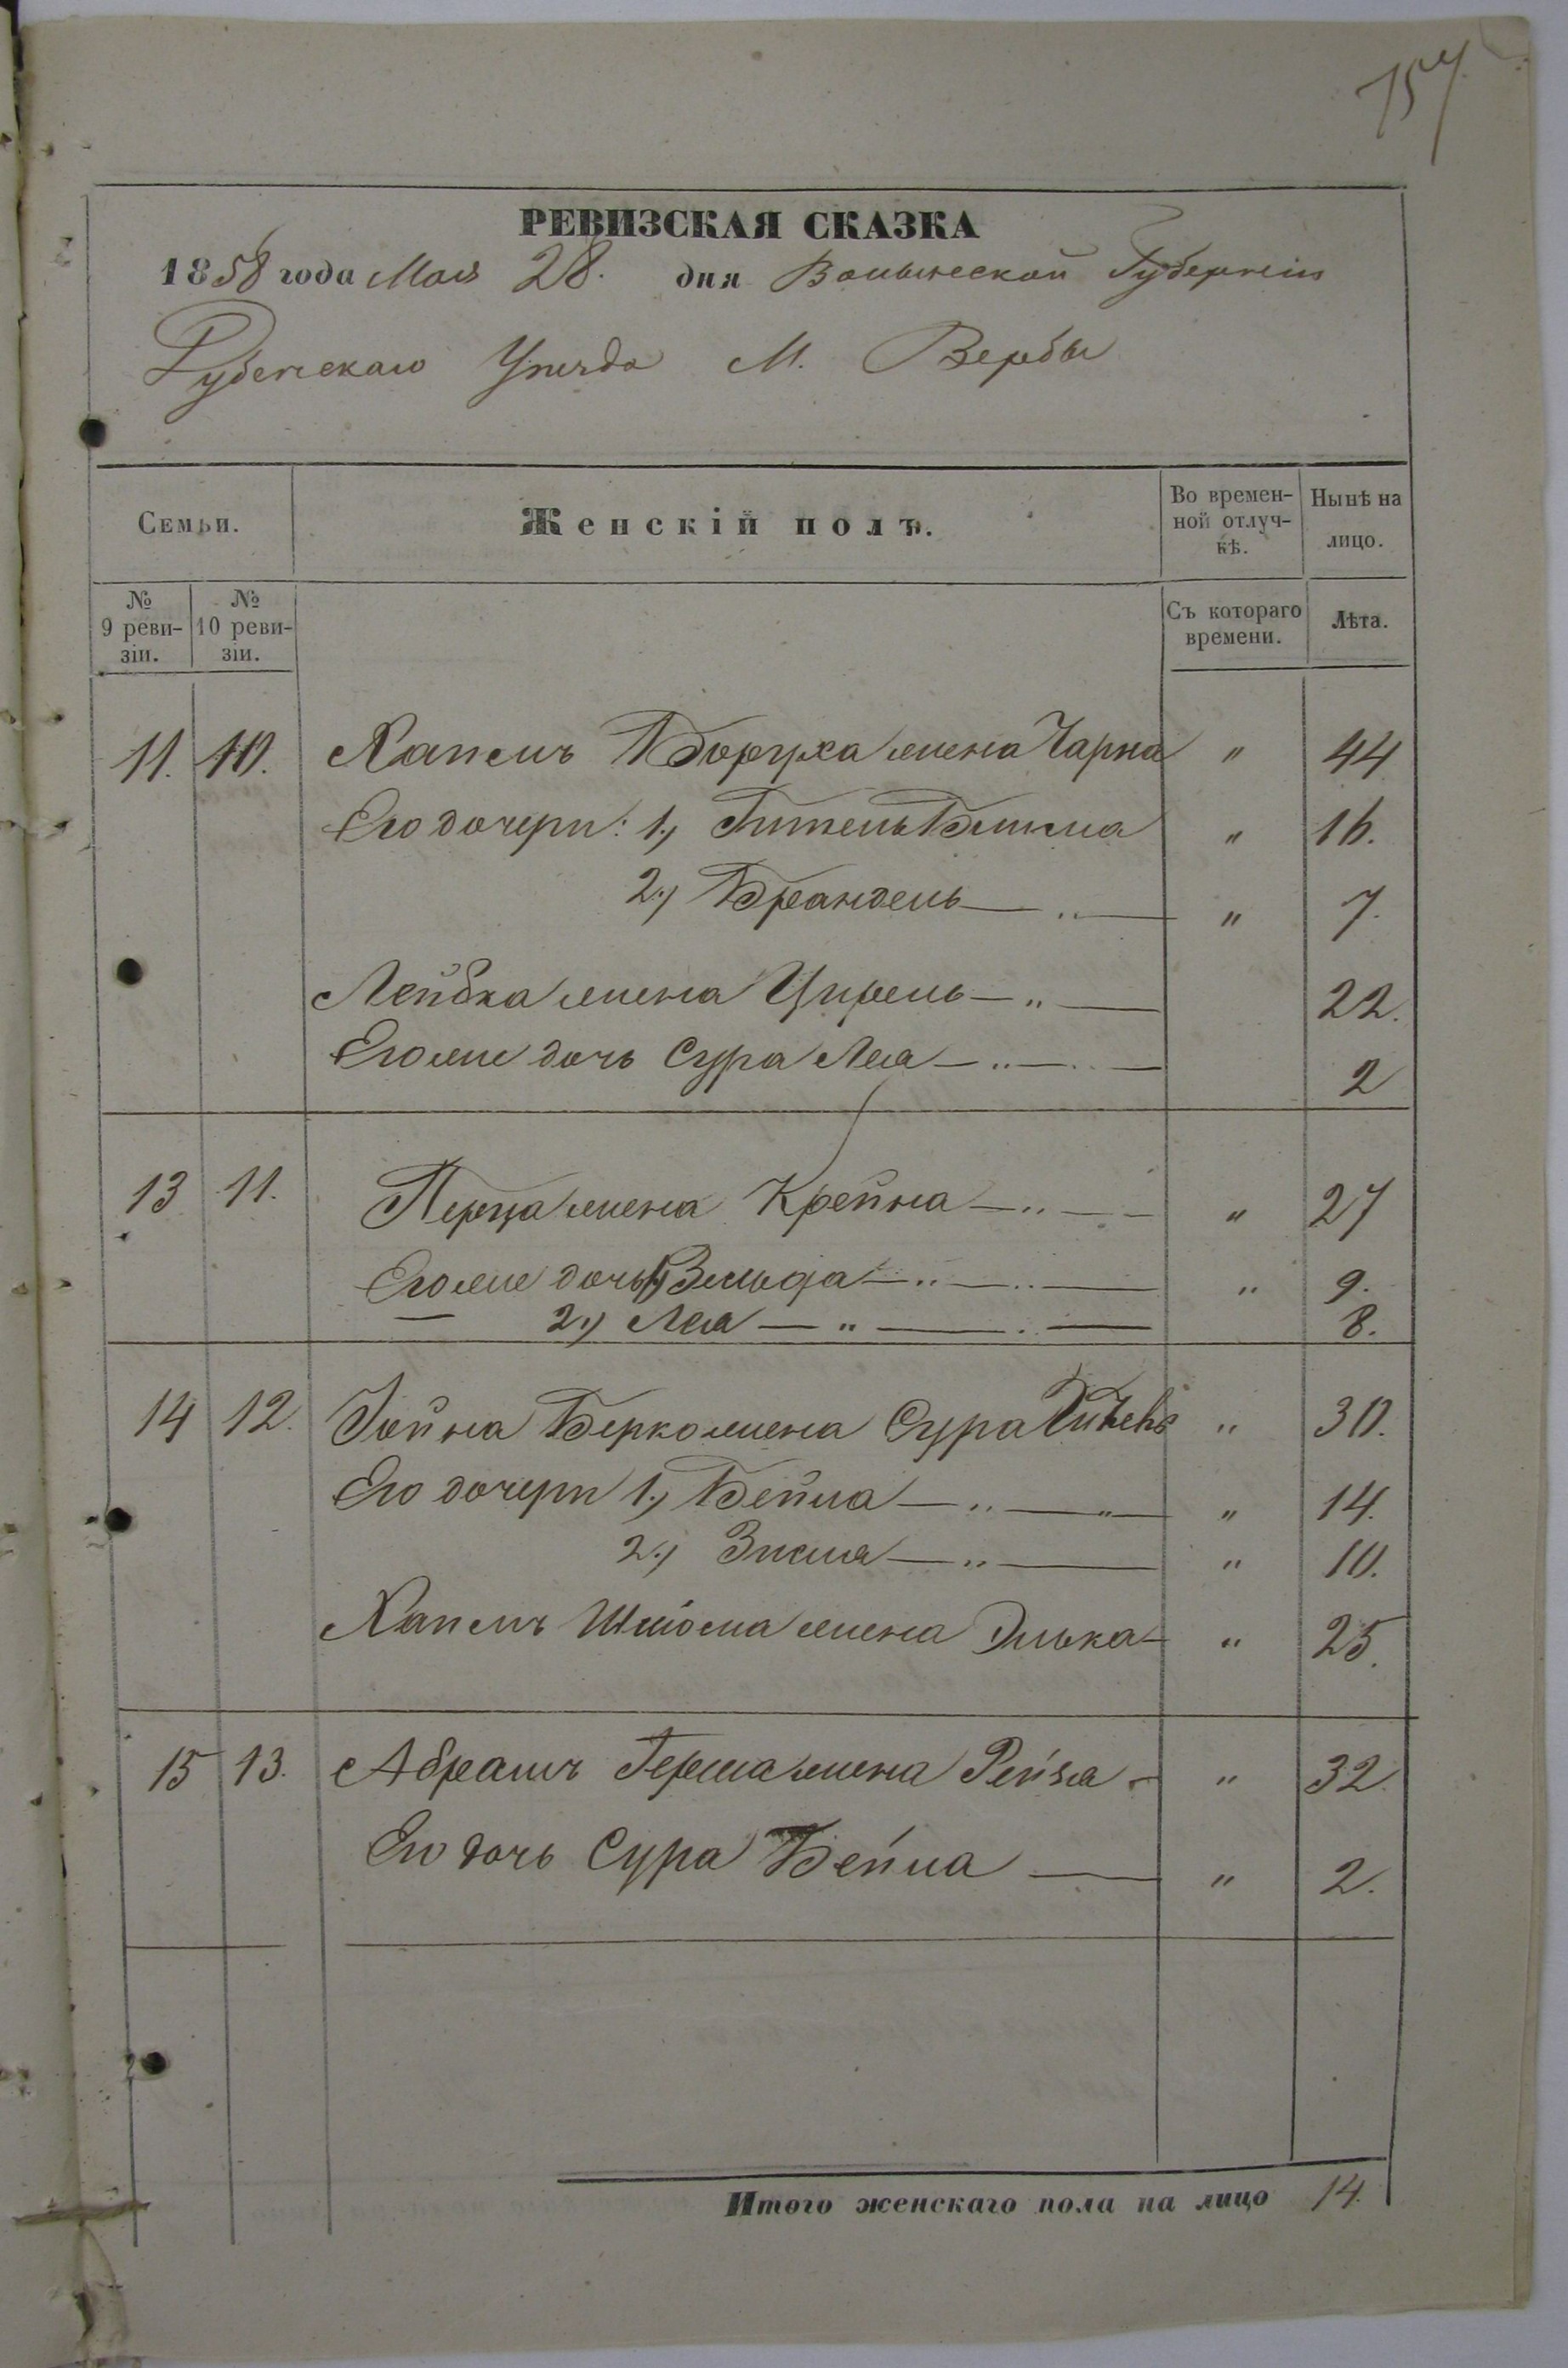 157.
РЕВИЗСКАЯ СКАЗКА
1858 года Мая 28. дня Волынской Губерніи
Дубенскаго Уѣзда М. Вербы
Семьи.
Женскій полъ.
Во времен-
ной отлуч-
кѣ.
Нынѣ на
лицо.
№
9 реви-
зіи.
№
10 реви-
зіи.
Съ котораго
времени.
Лѣта.
11. 10. Хаимъ Боруха жена Чарна " 44
Его дочери: 1., Гитель Блима " 16.
2., Брандель — „ — " 7.
Лейбка жена Цирель — „ — 22.
Его же дочь Сура Лея — „ — 2
13 11. Перца жена Крейна — „ — " 27
Его же дочь 1) Зельда — „ — „ — " 9.
— 2., Лея — „ — 8.
14 12. Іойна Берко жена Сура Гитель " 30.
Его дочери 1., Бейла — „ — „ — " 14.
2., Зисля — „ — " 10.
Хаимъ Шліома жена Элька — " 25.
15 13. Абрамъ Герша жена Рейза — " 32.
Его дочь Сура Бейла — " 2.
Итого женскаго пола на лицо 14.